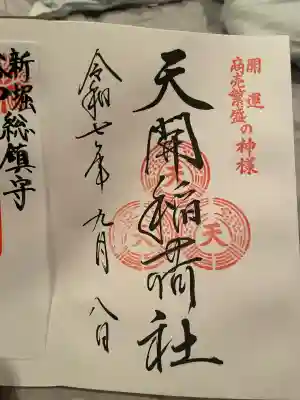 開運
商売繁盛の神様
天開稲荷社
天
天
令和七年九月八日
新堀総鎮守